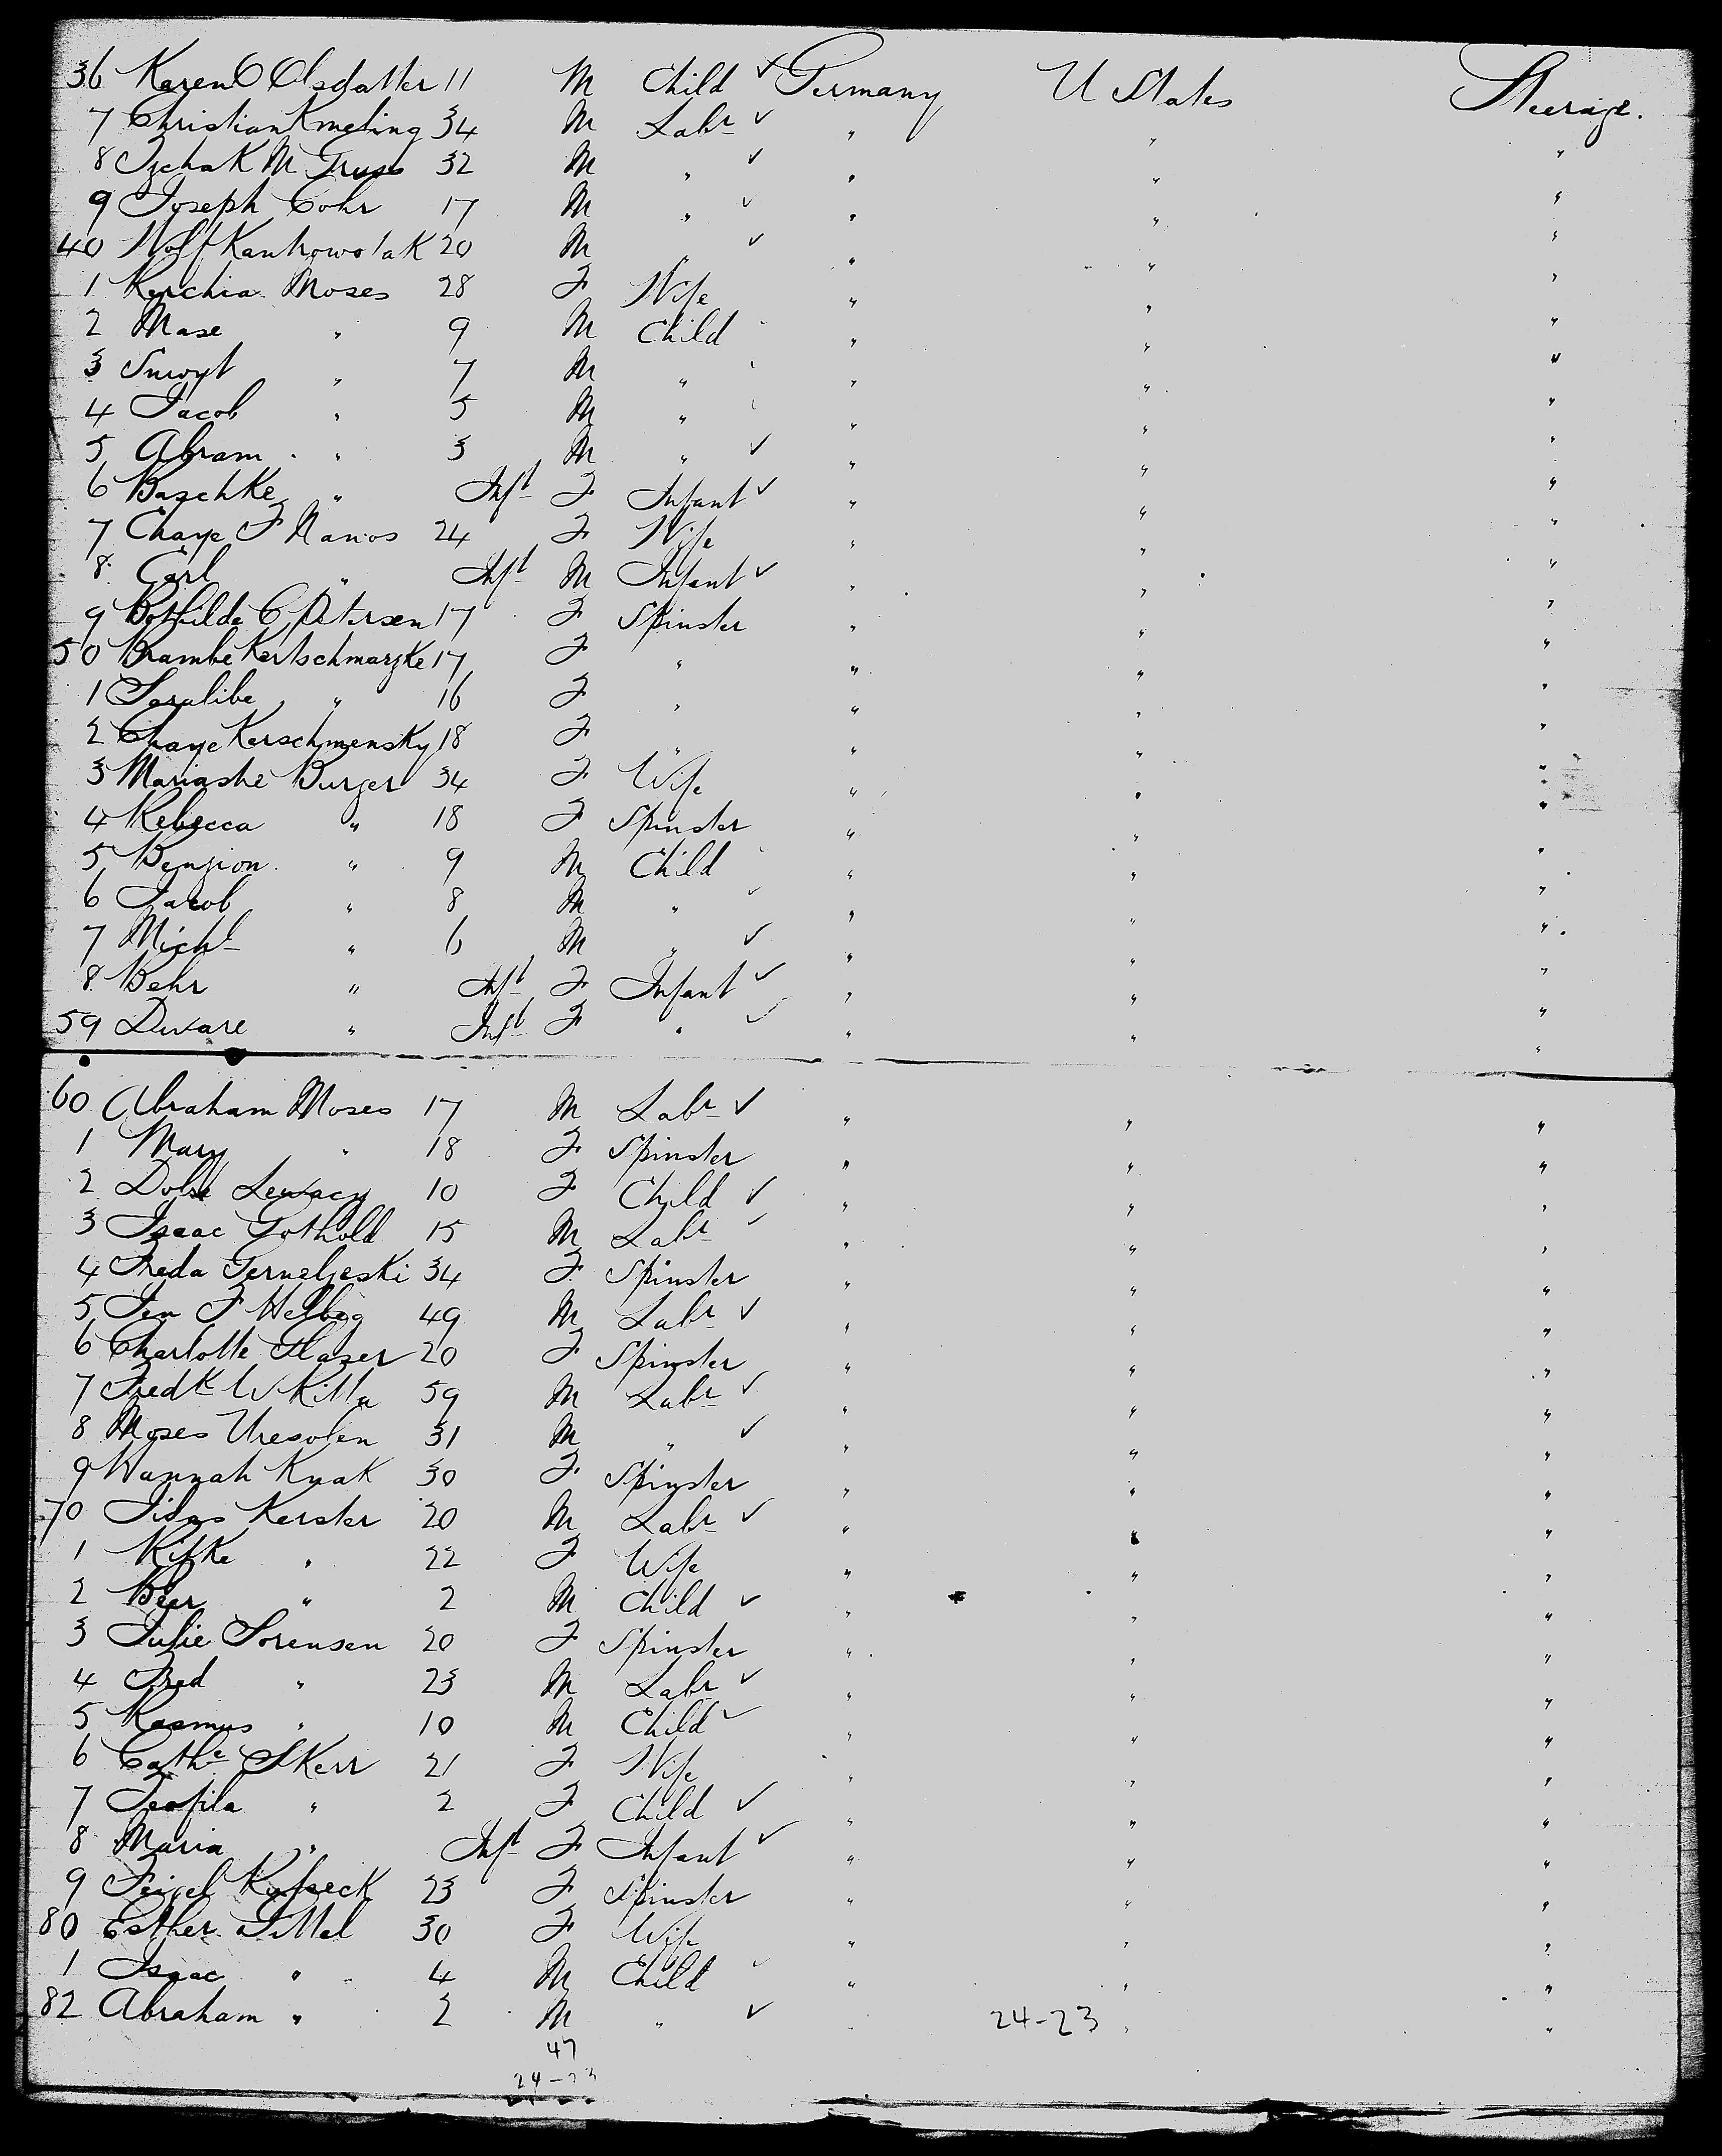 36 Karen C Olsdatter 11 M Child ✓ Germany U States Steerage.
7 Christian Kmeting 34 M Labr ✓ " " "
8 Izchak M Truss 32 M " ✓ " " "
9 Joseph Cohr 17 M " ✓ " " "
40 Wolf Kantrowolak 20 M " ✓ " " "
1 Kerchia Moses 28 F Wife " " "
2 Mase " 9 M Child " " "
3 " 7 M " " " "
4 Jacob " 5 M " " " "
5 Abram " 3 M " ✓ " " "
6 Baschke " Inft F Infant ✓ " " "
7 Chaye F Manos 24 F Wife " " "
8 Carl " Inft M Infant ✓ " " "
9 Bothilde C Petersen 17 F Spinster " " "
50 Brambe Kertschmarzke 17 F " " " "
1 Saralibe " 16 F " " " "
2 Chaye Kerschmensky 18 F " " " "
3 Mariashe Burger 34 F Wife " " "
4 Rebecca " 18 F Spinster " " "
5 Benzion " 9 M Child " " "
6 Jacob " 8 M " ✓ " " "
7 Michl " 6 M " ✓ " " "
8 Behr " Inft F Infant ✓ " " "
59 Dware " Inft F " ✓ " " "
60 Abraham Moses 17 M Labr ✓ " " "
1 Mary " 18 F Spinster " " "
2 Dobe 10 F Child ✓ " " "
3 Isaac Gothold 15 M Labr ✓ " " "
4 Freda 34 F Spinster " " "
5 Jen F Helbog 49 M Labr ✓ " " "
6 Charlotte Glaser 20 F Spinster " " "
7 Fredk W Kitta 59 M Labr ✓ " " "
8 Moses Uresolen 31 M " ✓ " " "
9 Hannah Knak 30 F Spinster " " "
70 Kerster 20 M Labr ✓ " " "
1 Rifke " 22 F Wife " " "
2 Beer " 2 M Child ✓ " " "
3 Julie Sorensen 20 F Spinster " " "
4 Fred " 23 M Labr ✓ " " "
5 Rasmus " 10 M Child ✓ " " "
6 Cathe Skerr 21 F Wife " " "
7 Teofila " 2 F Child ✓ " " "
8 Maria " Inft F Infant ✓ " " "
9 Feigel 23 F Spinster " " "
80 Esther Tittel 30 F Wife " " "
1 Isaac " 4 M Child ✓ " " "
82 Abraham " 2 M " ✓ " 24-23 " "
47
24-23